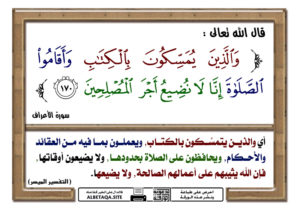 قال الله تعالى :
وَالَّذِينَ يُمَسِّكُونَ بِالْكِتَابِ وَأَقَامُوا
الصَّلَوٰةَ إِنَّا لَا نُضِيعُ أَجْرَ الْمُصْلِحِينَ ١٧٠
سورة الأعراف
أي والذين يتمسكون بالكتاب، ويعملون بما فيه من العقائد
والأحكام، ويحافظون على الصلاة بحدودها، ولا يضيعون أوقاتها،
فإن الله يثيبهم على أعمالهم الصالحة، ولا يضيعها.
( التفسير الميسر )
ALBETAQA.SITE
احرص على طباعة
ونشر هذه الورقة